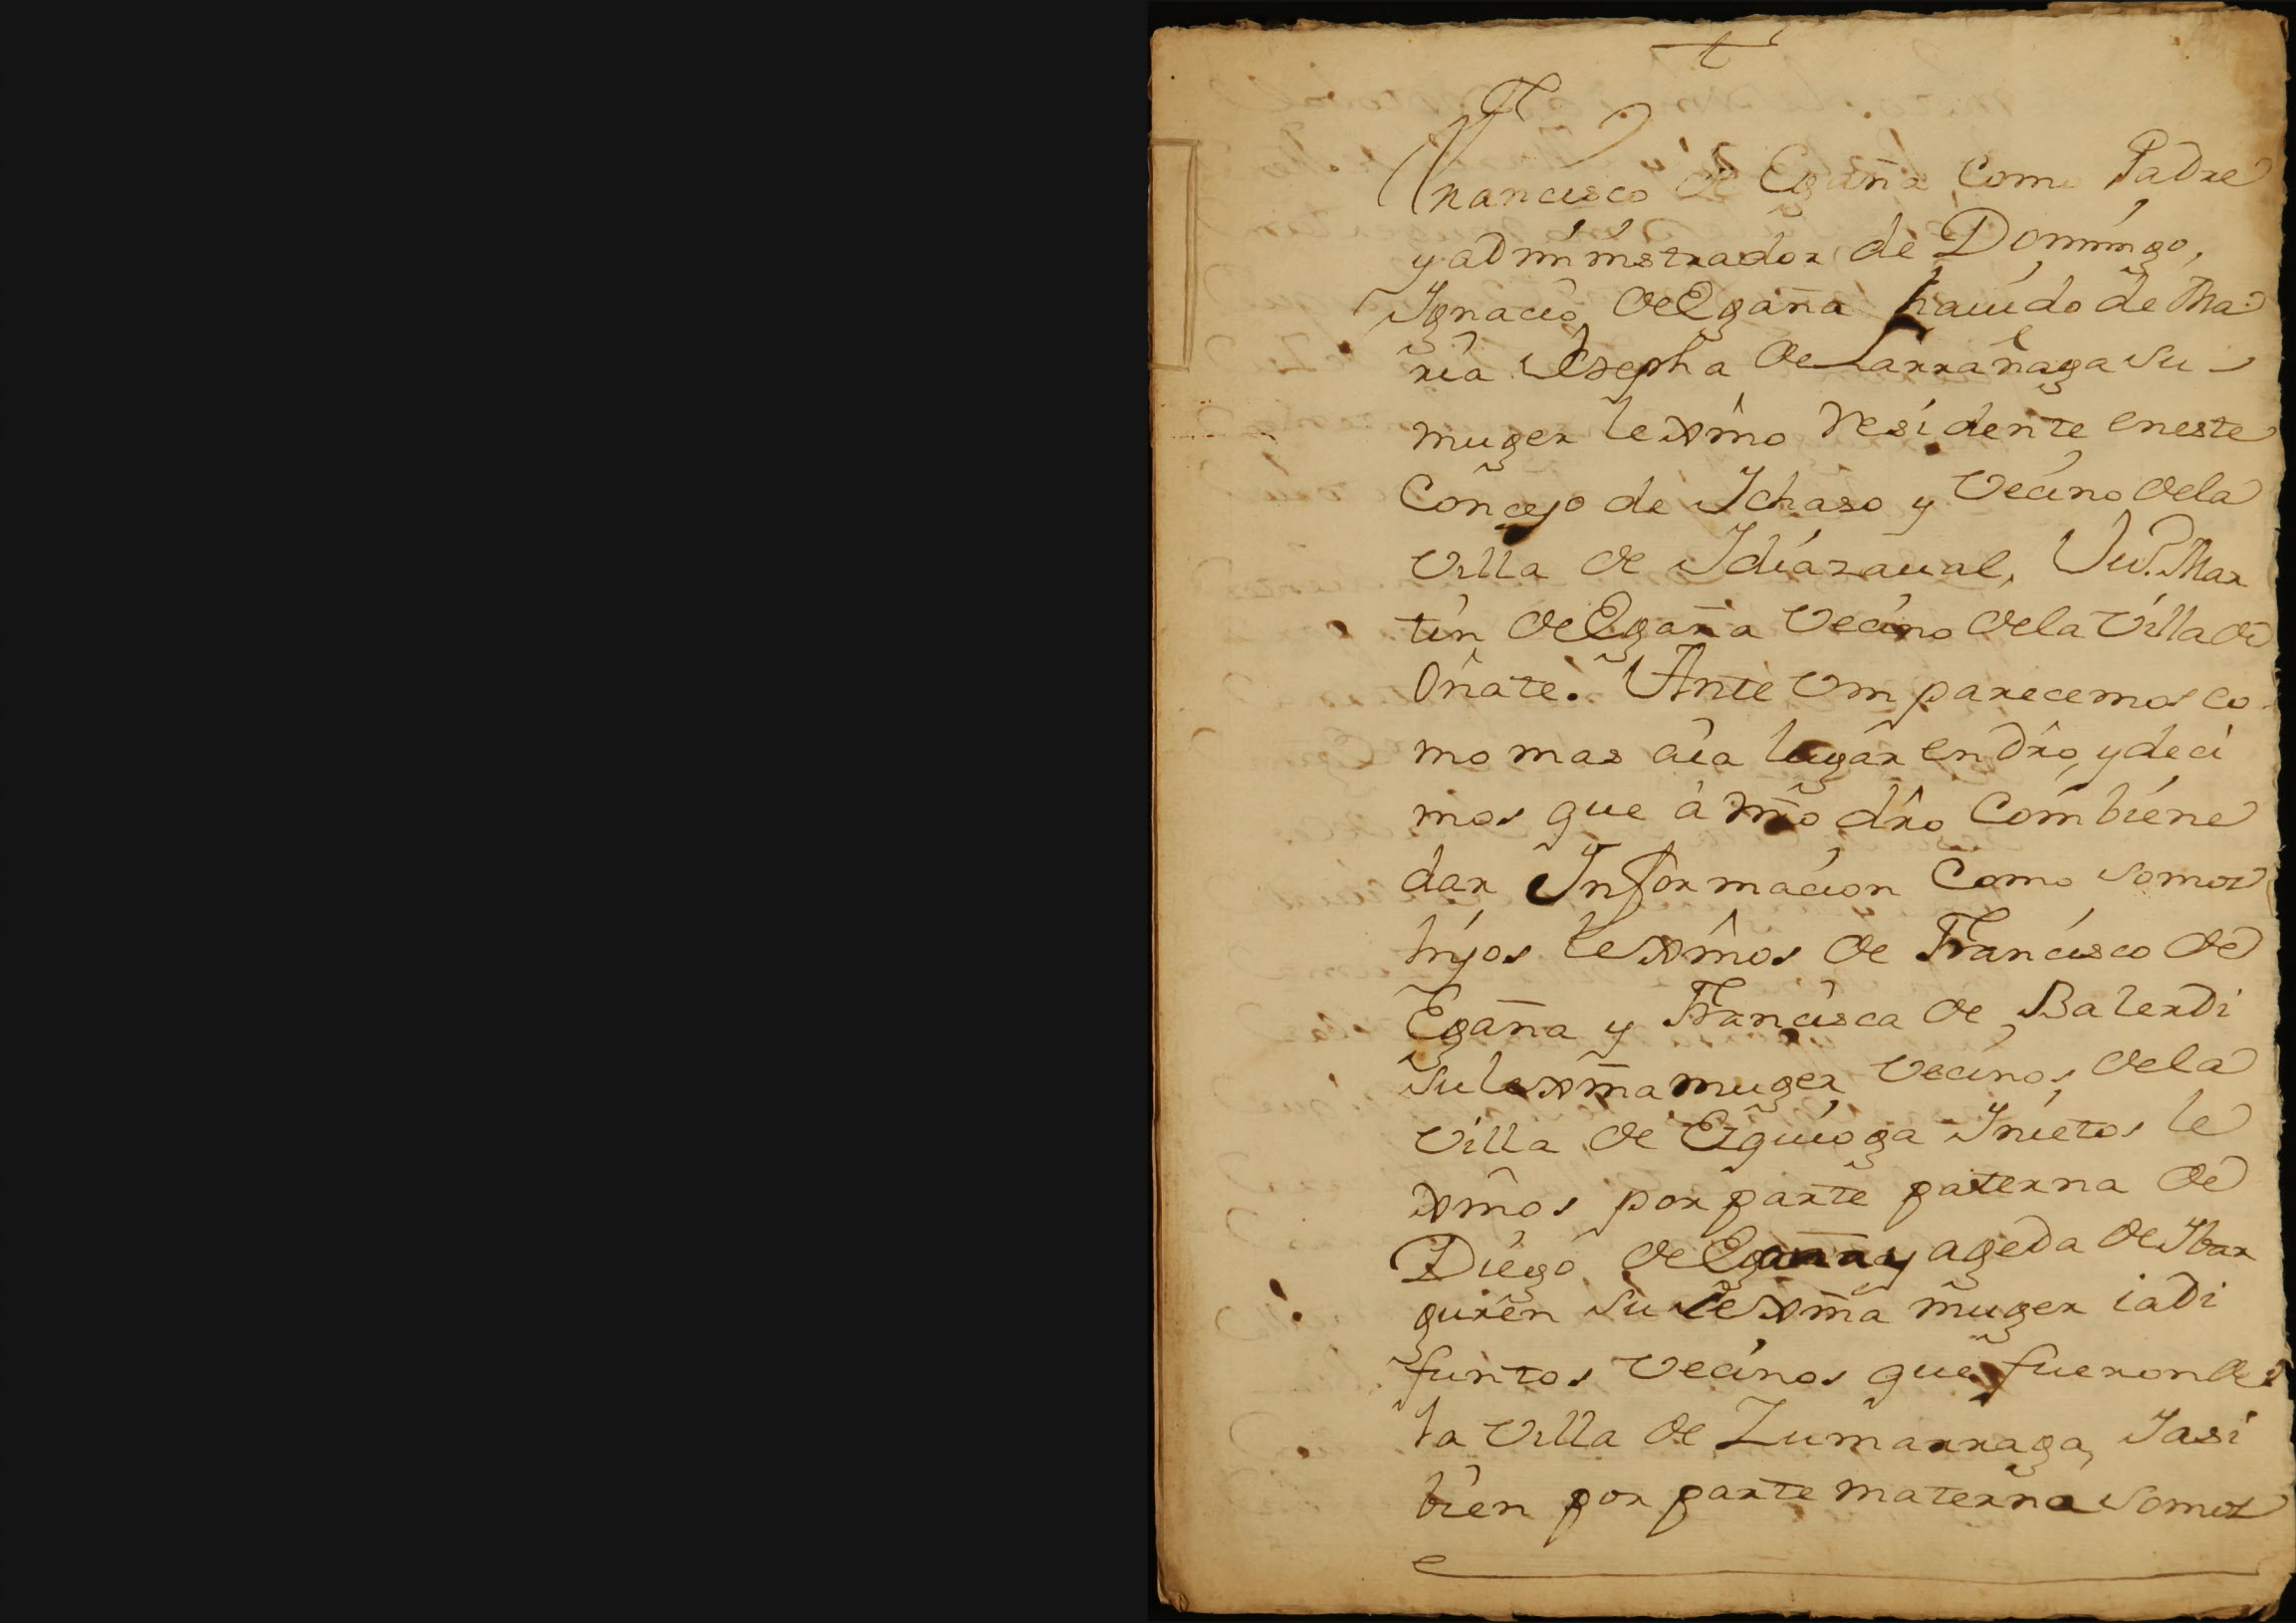 t
Francisco de Egaña Como Padre
y administrador de Domingo,
Ignacio de Egaña hauido de Ma
ria Josepha de Larrañaga su
muger lexma Residente en este
Conçejo de Ichaso y Vecino dela
Villa de Idiazaual, Mar
tin de Egaña Vecino dela Villa de
Oñate. Ante Vm parecemos co
mo mas aia lugar en dro, y deci
mos que à nro dro Combiene
dar Informacion Como somos
hijos lexmos de Francisco de
Egaña y Francisca de Balerdi
su lexma muger Vecinos dela
Villa de Ezquioga I nietos le
xmos por parte paterna de
Diego de Egaña y ageda de Ibar
guren su lexma muger ia di
funtos Vecinos que fueron de
la Villa de Zumarraga, I asi
bien por parte materna somos